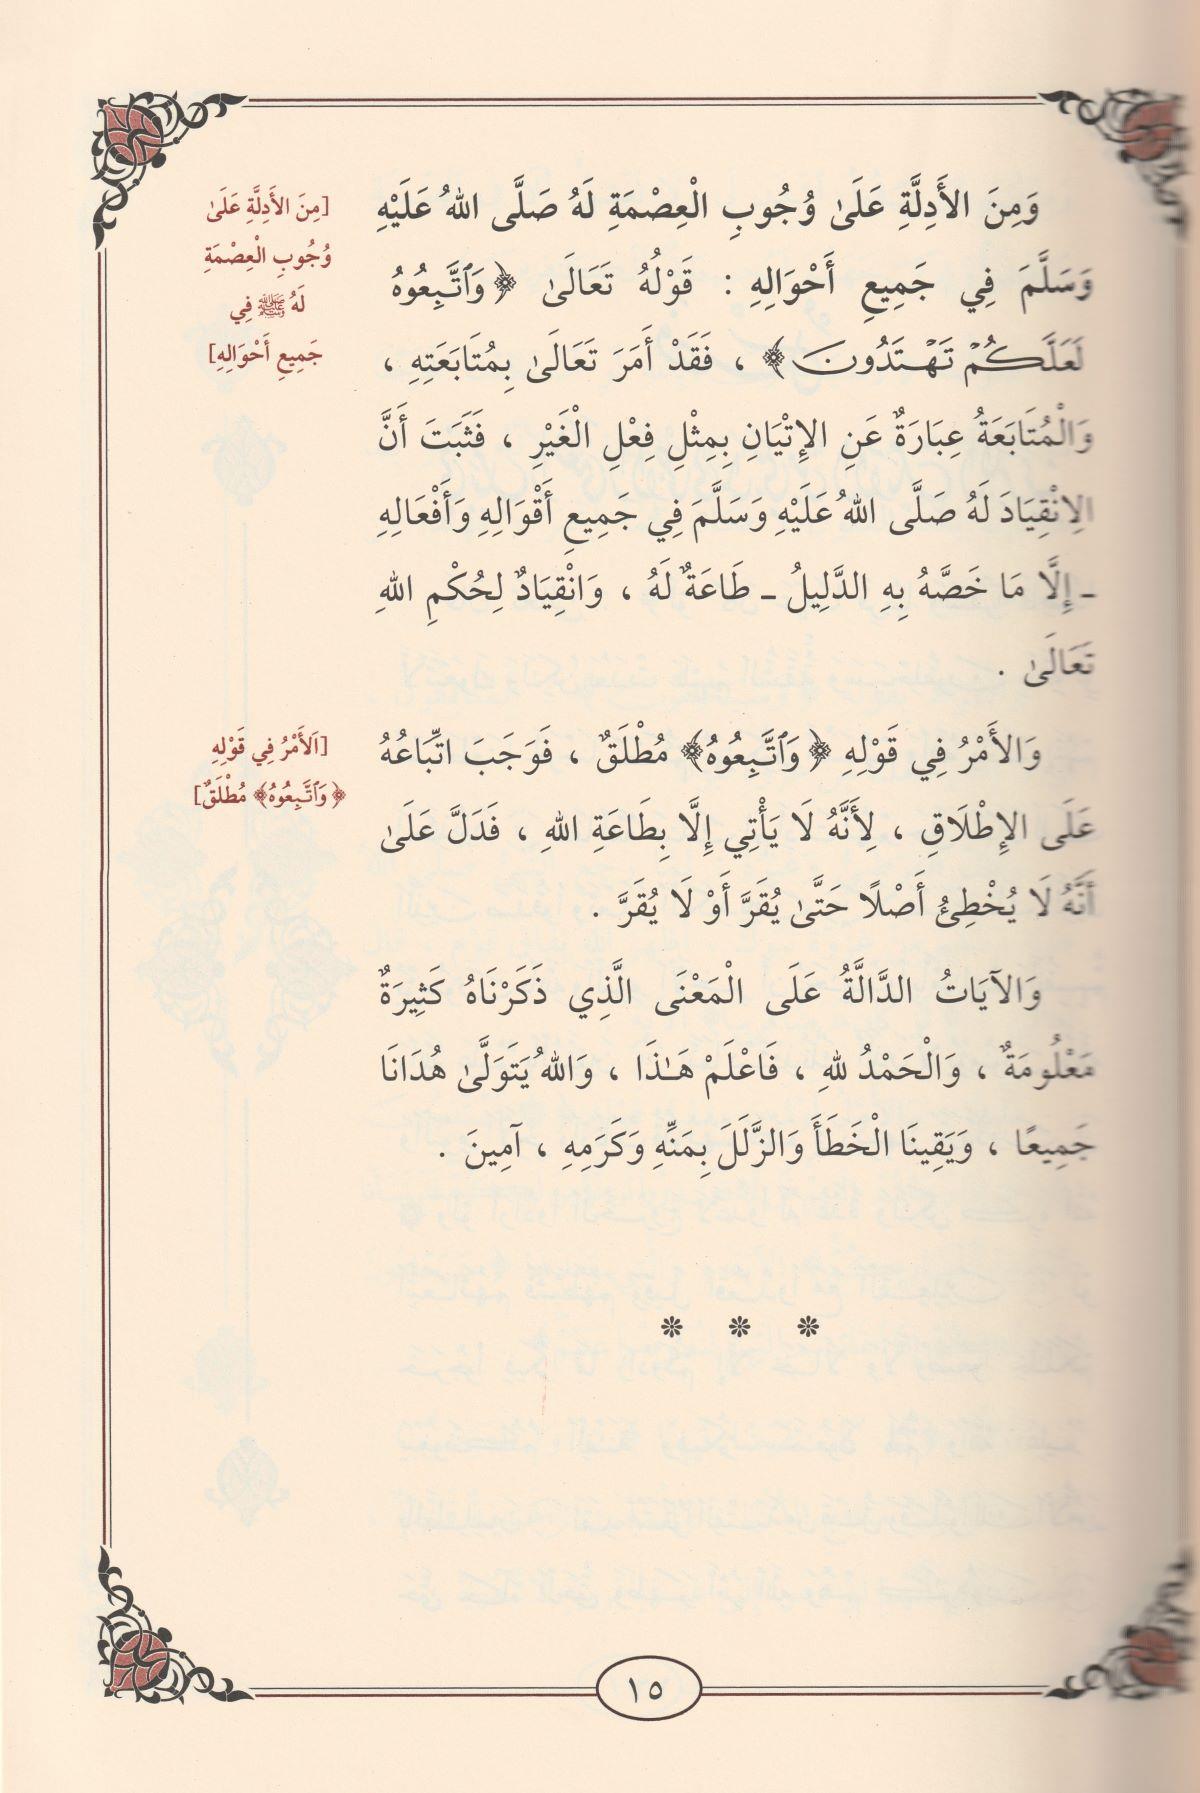 وَمِنَ الأَدِلَّةِ عَلَىٰ وُجُوبِ الْعِصْمَةِ لَهُ صَلَّى اللهُ عَلَيْهِ
وَسَلَّمَ فِي جَمِيعِ أَحْوَالِهِ : قَوْلُهُ تَعَالَىٰ ﴿وَٱتَّبِعُوهُ
لَعَلَّكُمْ تَهْتَدُونَ﴾ ، فَقَدْ أَمَرَ تَعَالَىٰ بِمُتَابَعَتِهِ ،
وَالْمُتَابَعَةُ عِبَارَةٌ عَنِ الإِتْيَانِ بِمِثْلِ فِعْلِ الْغَيْرِ ، فَثَبَتَ أَنَّ
الِانْقِيَادَ لَهُ صَلَّى اللهُ عَلَيْهِ وَسَلَّمَ فِي جَمِيعِ أَقْوَالِهِ وَأَفْعَالِهِ
ـ إِلَّا مَا خَصَّهُ بِهِ الدَّلِيلُ ـ طَاعَةٌ لَهُ ، وَانْقِيَادٌ لِحُكْمِ اللهِ
تَعَالَىٰ .
[مِنَ الأَدِلَّةِ عَلَىٰ
وُجُوبِ الْعِصْمَةِ
لَهُ ﷺ فِي
جَمِيعِ أَحْوَالِهِ]
وَالأَمْرُ فِي قَوْلِهِ ﴿وَٱتَّبِعُوهُ﴾ مُطْلَقٌ ، فَوَجَبَ اتِّبَاعُهُ
عَلَى الإِطْلَاقِ ، لِأَنَّهُ لَا يَأْتِي إِلَّا بِطَاعَةِ اللهِ ، فَدَلَّ عَلَىٰ
أَنَّهُ لَا يُخْطِئُ أَصْلًا حَتَّىٰ يُقَرَّ أَوْ لَا يُقَرَّ .
[اَلأَمْرُ فِي قَوْلِهِ
﴿وَٱتَّبِعُوهُ﴾ مُطْلَقٌ]
وَالآيَاتُ الدَّالَّةُ عَلَى الْمَعْنَى الَّذِي ذَكَرْنَاهُ كَثِيرَةٌ
مَعْلُومَةٌ ، وَالْحَمْدُ للهِ ، فَاعْلَمْ هَـٰذَا ، وَاللهُ يَتَوَلَّىٰ هُدَانَا
جَمِيعًا ، وَيَقِينَا الْخَطَأَ وَالزَّلَلَ بِمَنِّهِ وَكَرَمِهِ ، آمِينَ .
❊ ❊ ❊
١٥